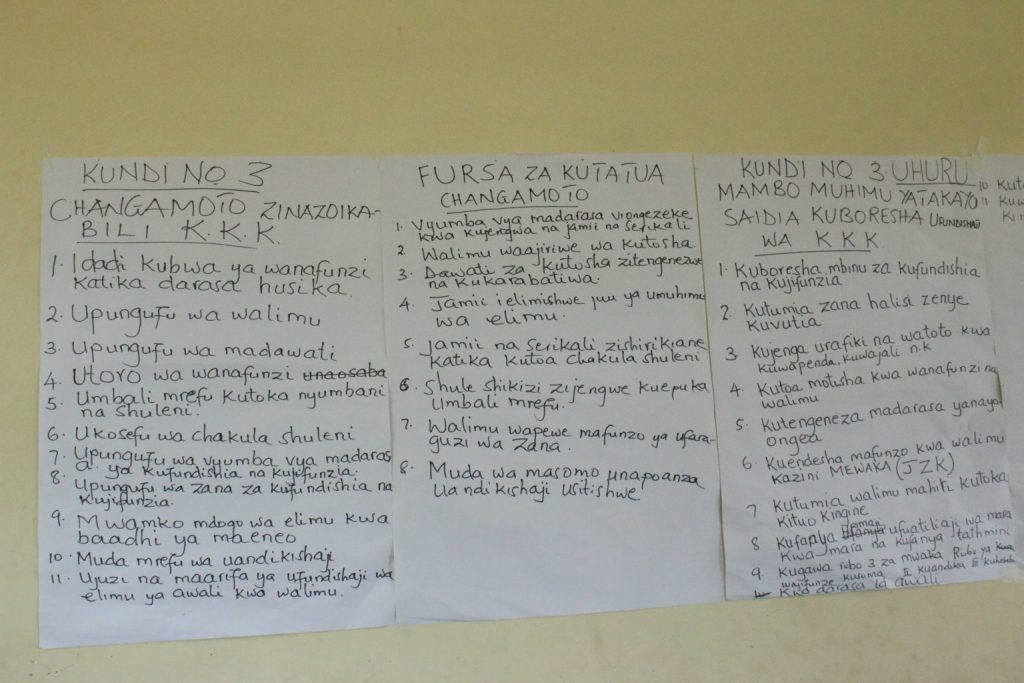 KUNDI NO 3
CHANGAMOTO ZINAZOIKA-
BILI K.K.K.
1. Idadi kubwa ya wanafunzi
katika darasa husika.
2. Upungufu wa walimu
3. Upungufu wa madawati
4. Utoro wa wanafunzi unaosaba
5. Umbali mrefu kutoka nyumbani
na shuleni.
6. Ukosefu wa chakula shuleni
7. Upungufu wa vyumba vya madaras
a. ya kufundishia na kujifunzia.
8. Upungufu wa zana za kufundishia na
kujifunzia.
9. Mwamko mdogo wa elimu kwa
baadhi ya maeneo
10. Muda mrefu wa uandikishaji
11. Ujuzi na maarifa ya ufundishaji wa
elimu ya awali kwa walimu.
FURSA ZA KUTATUA
CHANGAMOTO
1. Vyumba vya madarasa viongezeke
kwa kujengwa na jamii na serikali
2. Walimu waajiriwe wa kutosha
3. Dawati za kutosha zitengenezwe
na kukarabatiwa.
4. Jamii ielimishwe juu ya umuhimu
wa elimu.
5. Jamii na serikali zishirikiane
katika kutoa chakula shuleni
6. Shule shikizi zijengwe kuepuka
umbali mrefu.
7. Walimu wapewe mafunzo ya ufara-
guzi wa zana.
8. Muda wa masomo unapoanza
uandikishaji usitishwe
KUNDI NO 3 UHURU
MAMBO MUHIMU YATAKAYO
SAIDIA KUBORESHA UFUNDISHAJI
WA KKK
1. Kuboresha mbinu za kufundishia
na kujifunzia
2. Kutumia zana halisi zenye
kuvutia
3 Kujenga urafiki na watoto kwa
kuwapenda. kuwajali n.k
4 Kutoa motisha kwa wanafunzi na
walimu
5. Kutengeneza madarasa yanayo
ongea
6. Kuendesha mafunzo kwa walimu
kazini MEWAKA (JZK)
7 Kutumia walimu mahiri kutoka
kituo kingine
8 Kufanya ufuatiliaji wa mara
kwa mara na kufanya tathmini
9. Kugawa robo 3 za mwaka Robo ya
wajifunze kusoma, II kuandika III
kwa darasa la awali
10.
11